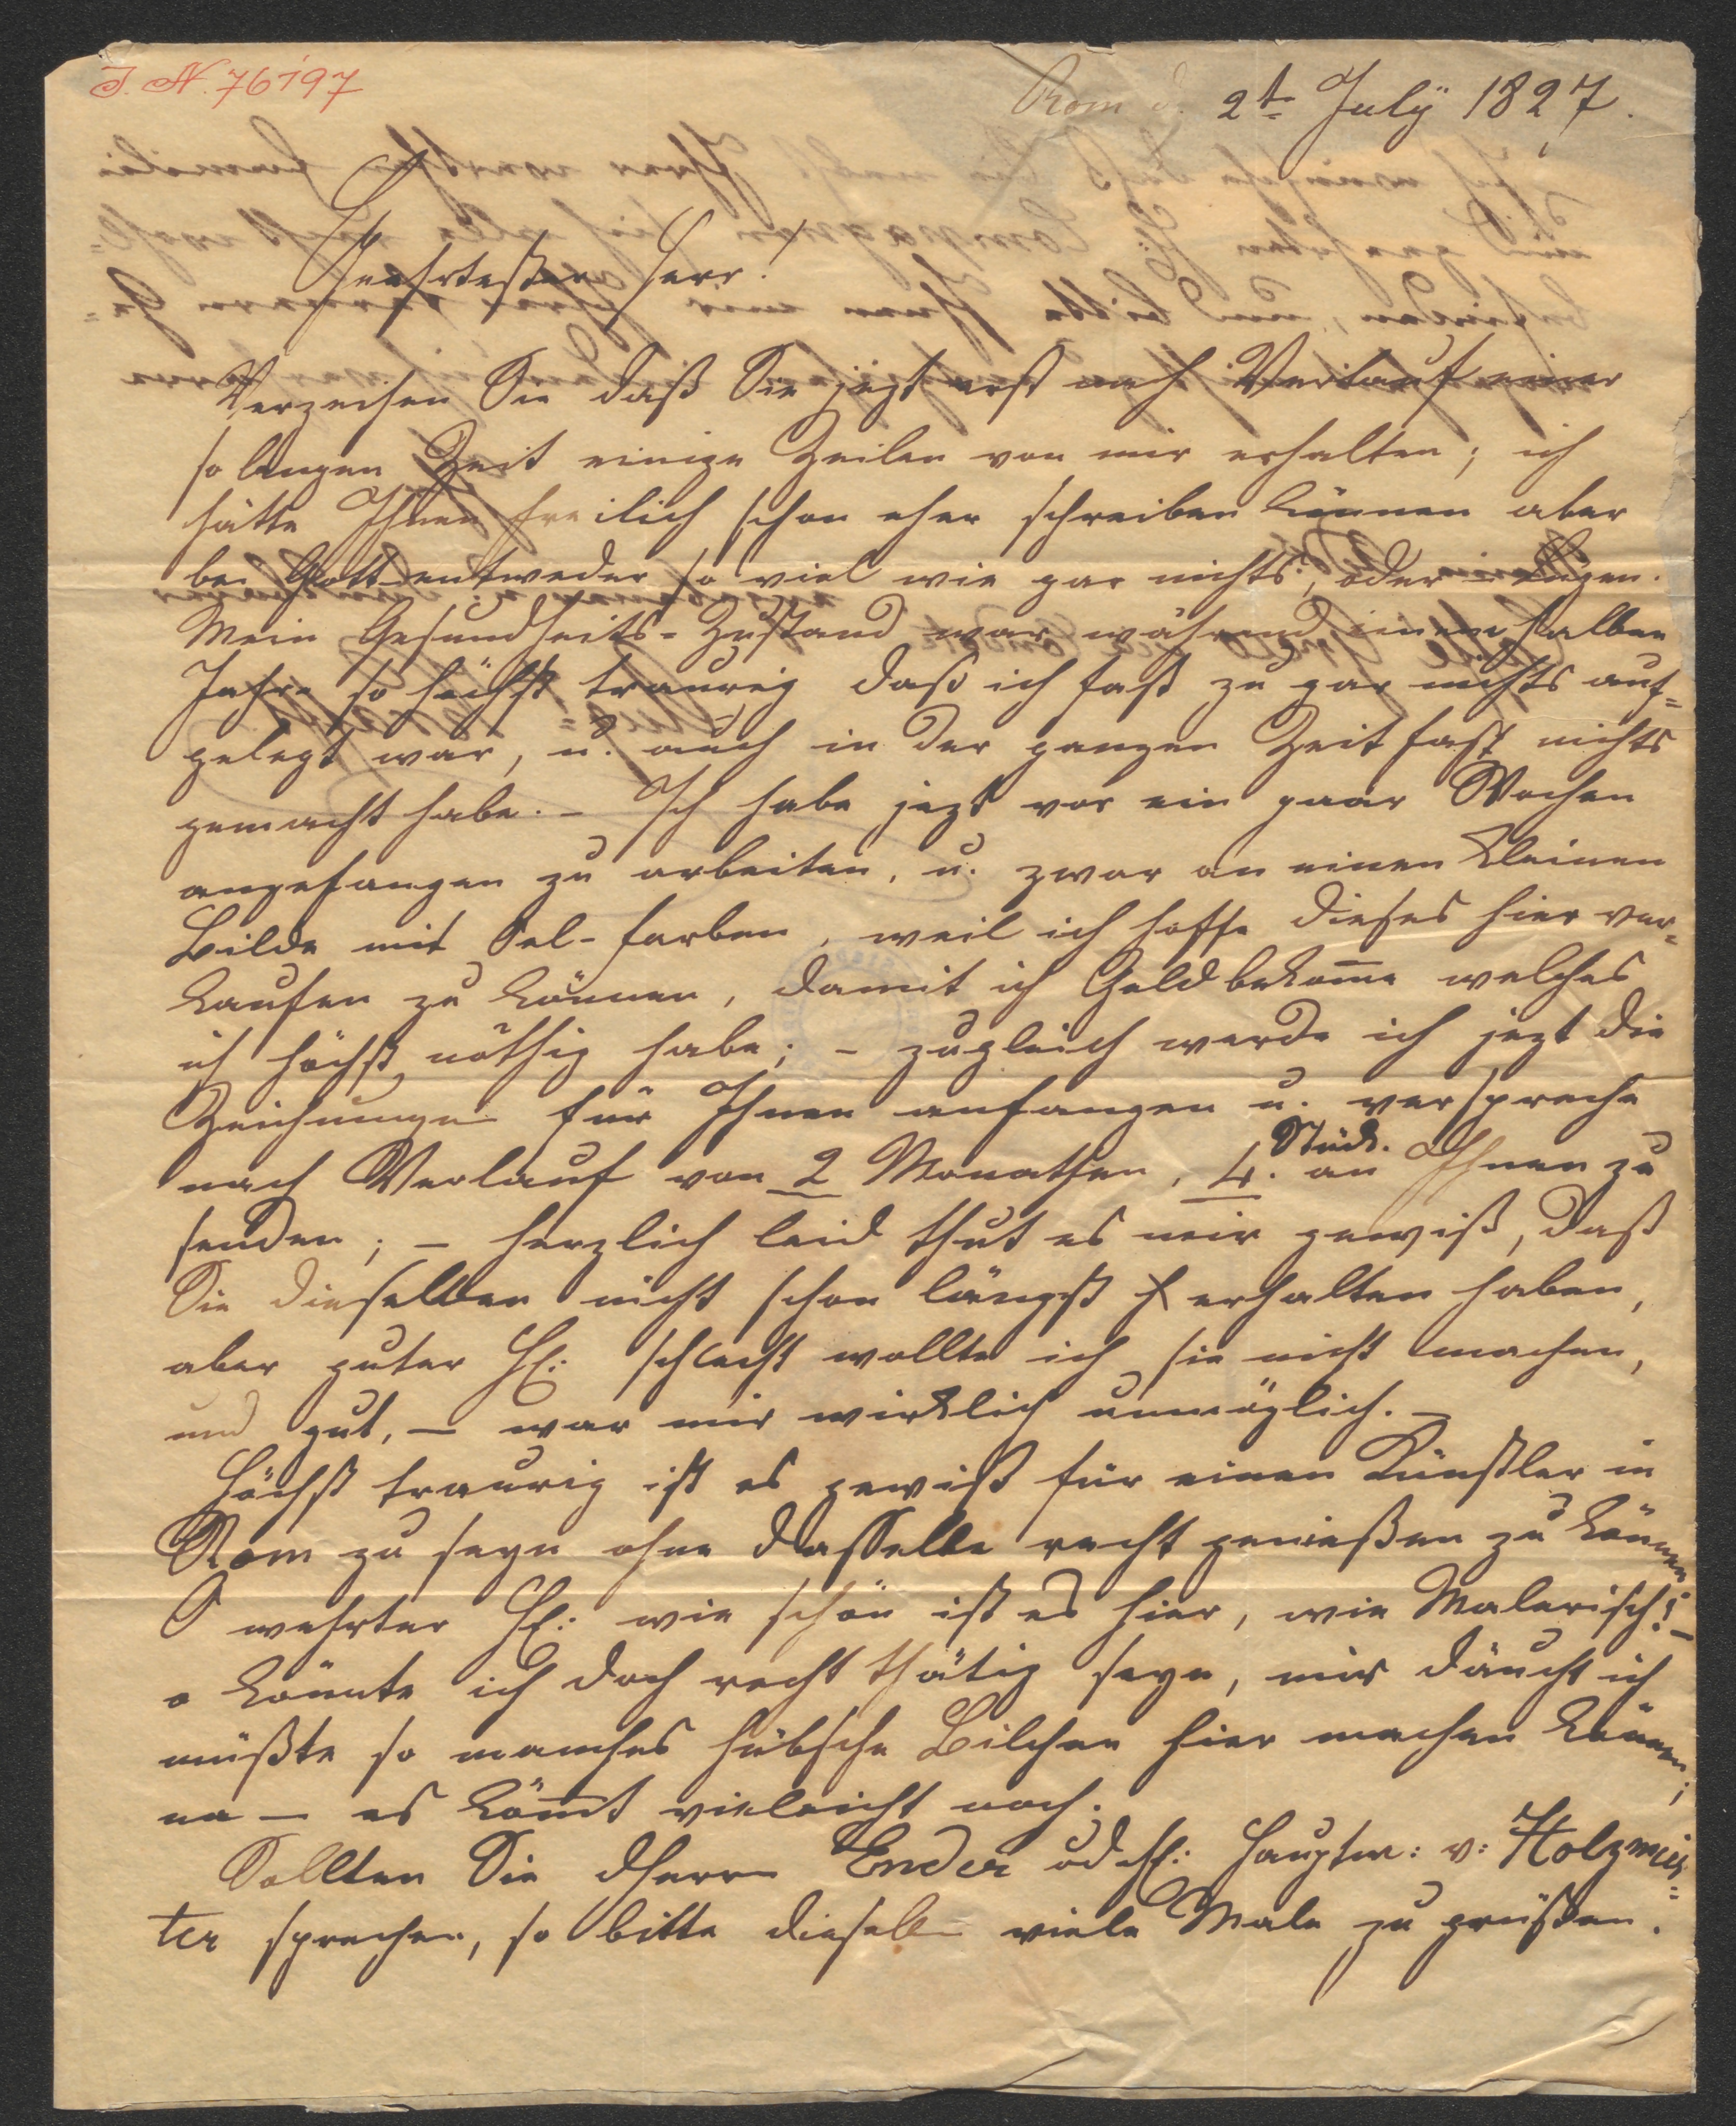 J. N. 76197
Rom d. 2t July 1827.
Geehrtester Herr!
Verzeihen Sie daß Sie jezt erst nach Verlauf einer
so langen Zeit einige Zeilen von mir erhalten; ich
hätte Ihnen freilich schon eher schreiben können aber
bei Gott entweder so viel wie gar nichts, oder Lügen.
Mein Gesundheits-Zustand war während einem halben
Jahre so höchst traurig daß ich fast zu gar nichts auf=
gelegt war, u. auch in der ganzen Zeit fast nichts
gemacht habe. – Ich habe jezt vor ein paar Wochen
angefangen zu arbeiten, u. zwar an einen kleinen
Bilde mit Oel-farben, weil ich hoffe dieses hier ver=
kaufen zu können, damit ich Geld bekom̄e welches
ich höchst nöthig habe; – zugleich werde ich jezt die
Zeichnungen für Ihnen anfangen u. verspreche
nach Verlauf von 2 Monathen, 4. Stück. an Ihnen zu
senden; – herzlich leid thut es mir gewiß, daß
Sie dieselben nicht schon längst erhalten haben,
aber guter H: schlecht wollte ich sie nicht machen,
und gut, – war mir wirklich unmöglich. –
Höchst traurig ist es gewiß für einen Künstler in
Rom zu seyn ohne dasselbe recht genießen zu können
O wehrter H: wie schön ist es hier, wie Malerisch! –
o könnte ich doch recht thätig seyn, mir däucht ich
müßte so manches hübsche Bilchen hier machen können;
na – es köm̄t vieleicht noch.
Sollten Sie dHerrn Ender od H: Hauptm: v: Holzmeis=
ter sprechen, so bitte dieselben viele Male zu grüßen.